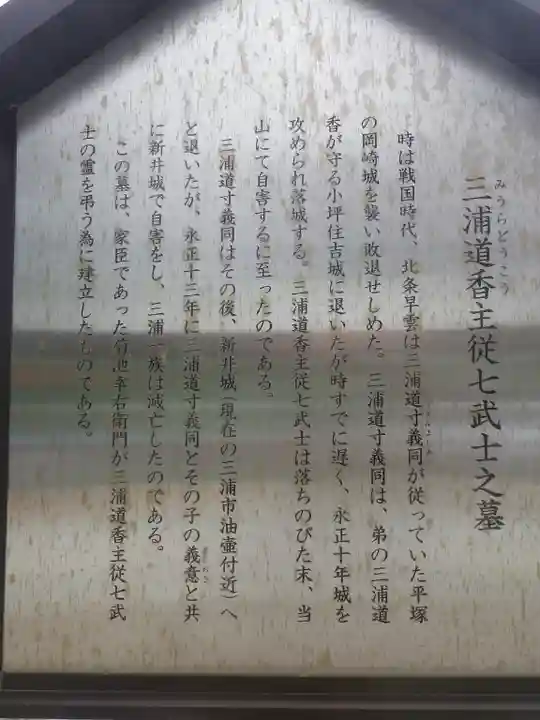 三浦道香主従七武士之墓
みうらどうこう
時は戦国時代、北条早雲は三浦道寸義同が従っていた平塚
の岡崎城を襲い敗退せしめた。三浦道寸義同は、弟の三浦道
香が守る小坪住吉城に退いたが時すでに遅く、永正十年城を
攻められ落城する。三浦道香主従七武士は落ちのびた末、当
山にて自害するに至ったのである。
三浦道寸義同はその後、新井城(現在の三浦市油壷付近)へ
と退いたが、永正十三年に三浦道寸義同とその子の義意と共
に新井城で自害をし、三浦一族は滅亡したのである。
この墓は、家臣であった菊池幸右衛門が三浦道香主従七武
士の霊を弔う為に建立したものである。